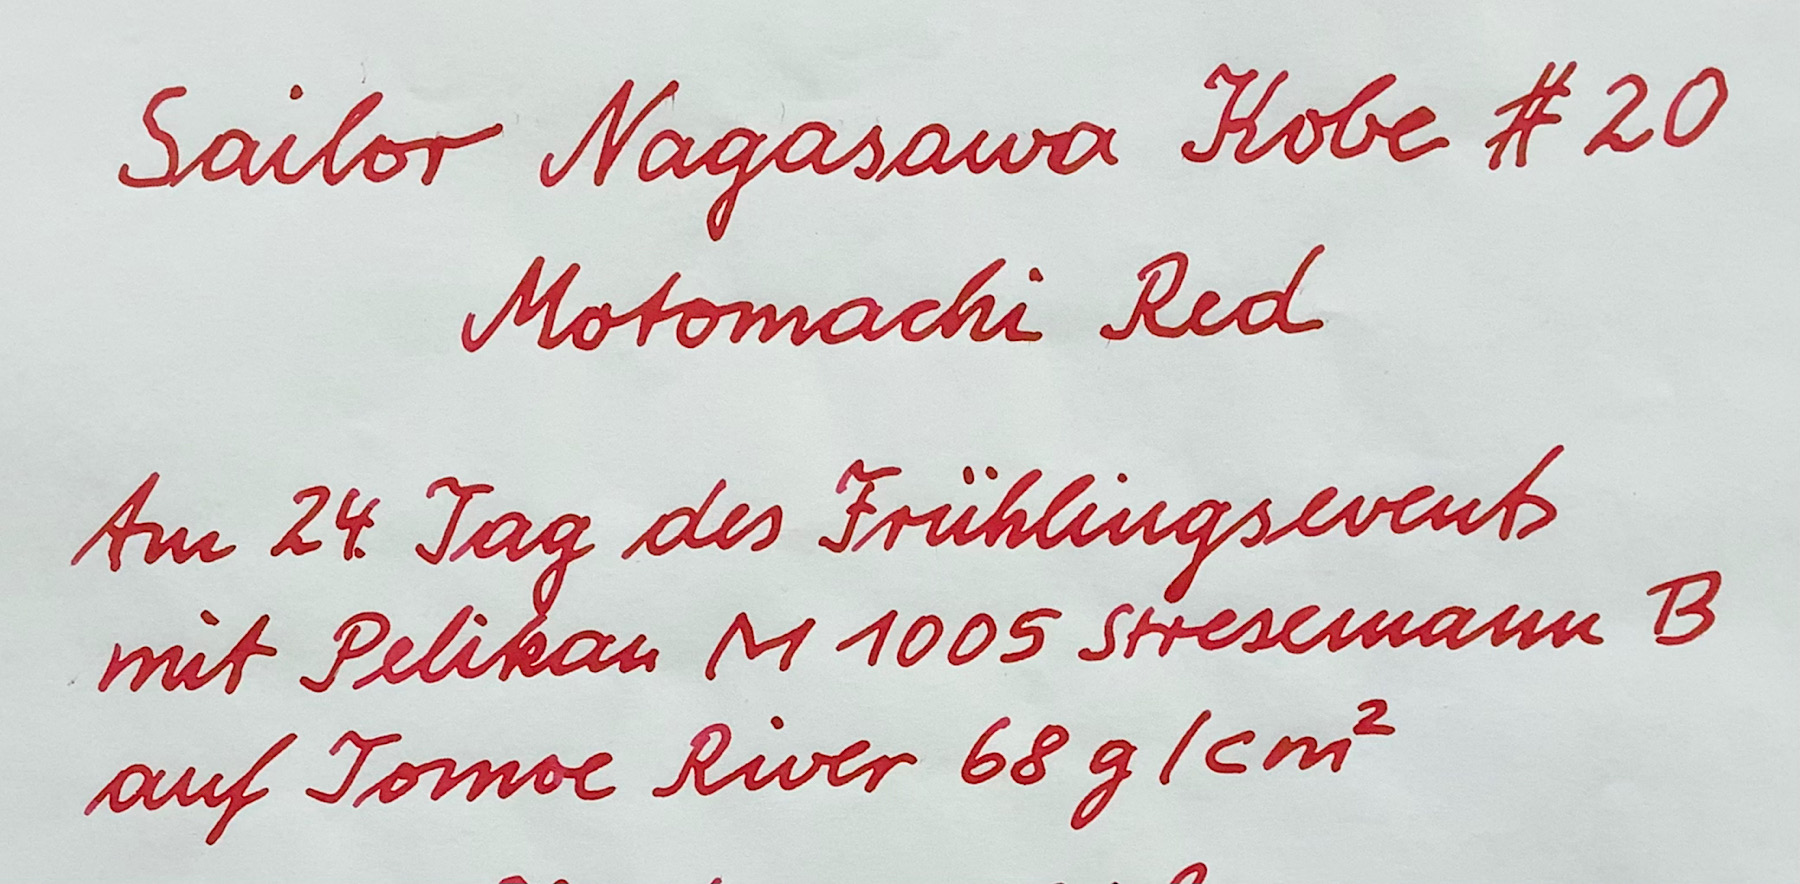 Sailor Nagasawa Kobe #20
Motomachi Red
Am 24. Tag des Frühlingsevents
mit Pelikan M 1005 Stresemann B
auf Tomoe River 68 g/cm²